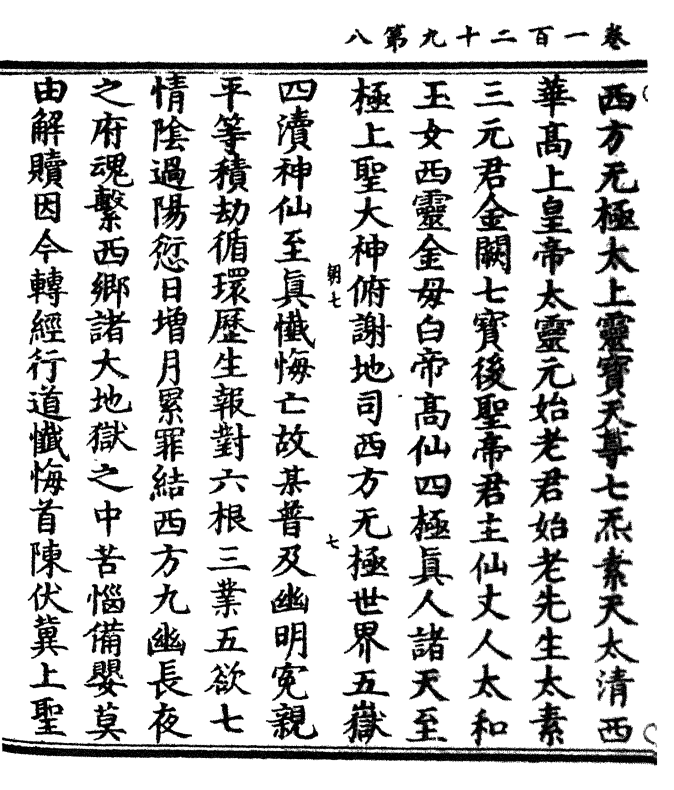 卷一百二十九第八
西方无極太上靈寶天尊七炁素天太清西
華髙上皇帝太靈元始老君始老先生太素
三元君金闕七寶後聖帝君主仙丈人太和
玉女西靈金毋白帝髙仙四極眞人諸天至
極上聖大神俯謝地司西方无極世界五嶽
朝七
七
四瀆神仙至眞懴悔亡故某普及幽明寃親
平等積劫循環歷生報對六根三業五欲七
情陰過陽愆日增月累罪結西方九幽長夜
之府魂繫西鄉諸大地獄之中苦惱備嬰莫
由解贖因今轉經行道懴悔首陳伏冀上聖